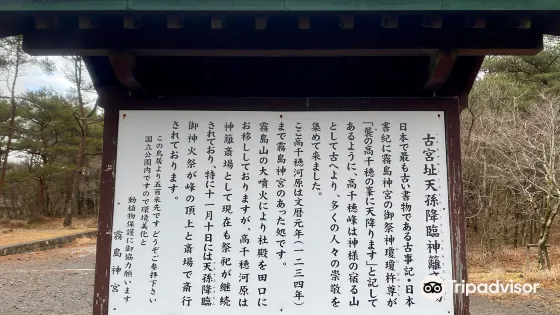 古宮址天孫降臨神籬
日本で最も古い書物である古事記・日本
書紀に霧島神宮の御祭神瓊瓊杵尊が
「襲の高千穂の峯に天降ります」と記して
あるように、高千穂峰は神様の宿る山
として古へより、多くの人々の崇敬を
集めて来ました。
ここ高千穂河原は文暦元年（一二三四年）
まで霧島神宮のあった処です。
霧島山の大噴火により社殿を田口に
お移ししておりますが、高千穂河原は
神籬斎場として現在も祭祀が継続
されており、特に十一月十日には天孫降臨
御神火祭が峰の頂上と斎場で斎行
されております。
この鳥居より五百米先ですどうぞご参拝下さい
国立公園内ですので環境美化と
動植物保護に御協力願います
霧島神宮
Tripadvisor